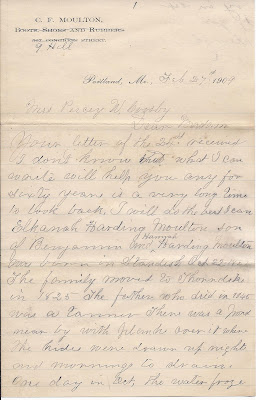 C. F. MOULTON,
BOOTS, SHOES AND RUBBERS
CONGRESS STREET.
9 Hill
Portland, Me., Feb 27th 1909
Mrs Percy W. Crosby
Dear
Your letter of the 25th received
I don't know that what I can
write will help you any for
sixty years is a very long time
to look back. I will do the best I can
Elkanah Harding Moulton son
of Benjamin and Hannah Harding Moulton
was born in Standish Oct 22
The family moved to Thorndike
in 1825 The father who died in 1845
was a tanner There was a pond
near by with plank over it where
the hides were drawn up night
and mornings to drain.
One day in Oct the water froze